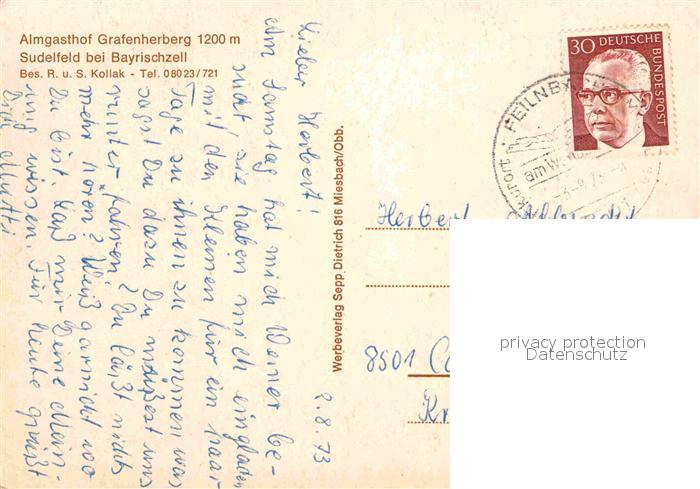 Almgasthof Grafenherberg 1200 m
Sudelfeld bei Bayrischzell
Bes. R. u. S. Kollak - Tel. 08023/721
2.8.73
Lieber Herbert!
Am Samstag hat mich Werner be-
sucht sie haben mich eingeladen
mit den Kleinen für ein paar
Tage zu ihnen zu kommen was
sagst Du dazu Du müßest uns
runter fahren? Du läßt nichts
mehr hören? Weiß garnicht wo
Du bist. Laß mir Deine Mein-
ung wissen. Für heute grüßt
Dich Mutti
Werbeverlag Sepp Dietrich 816 Miesbach/Obb.
30 DEUTSCHE
BUNDESPOST
FEILNB
Kurort
am Wen
Herbert
8501
Kr
privacy protection
Datenschutz